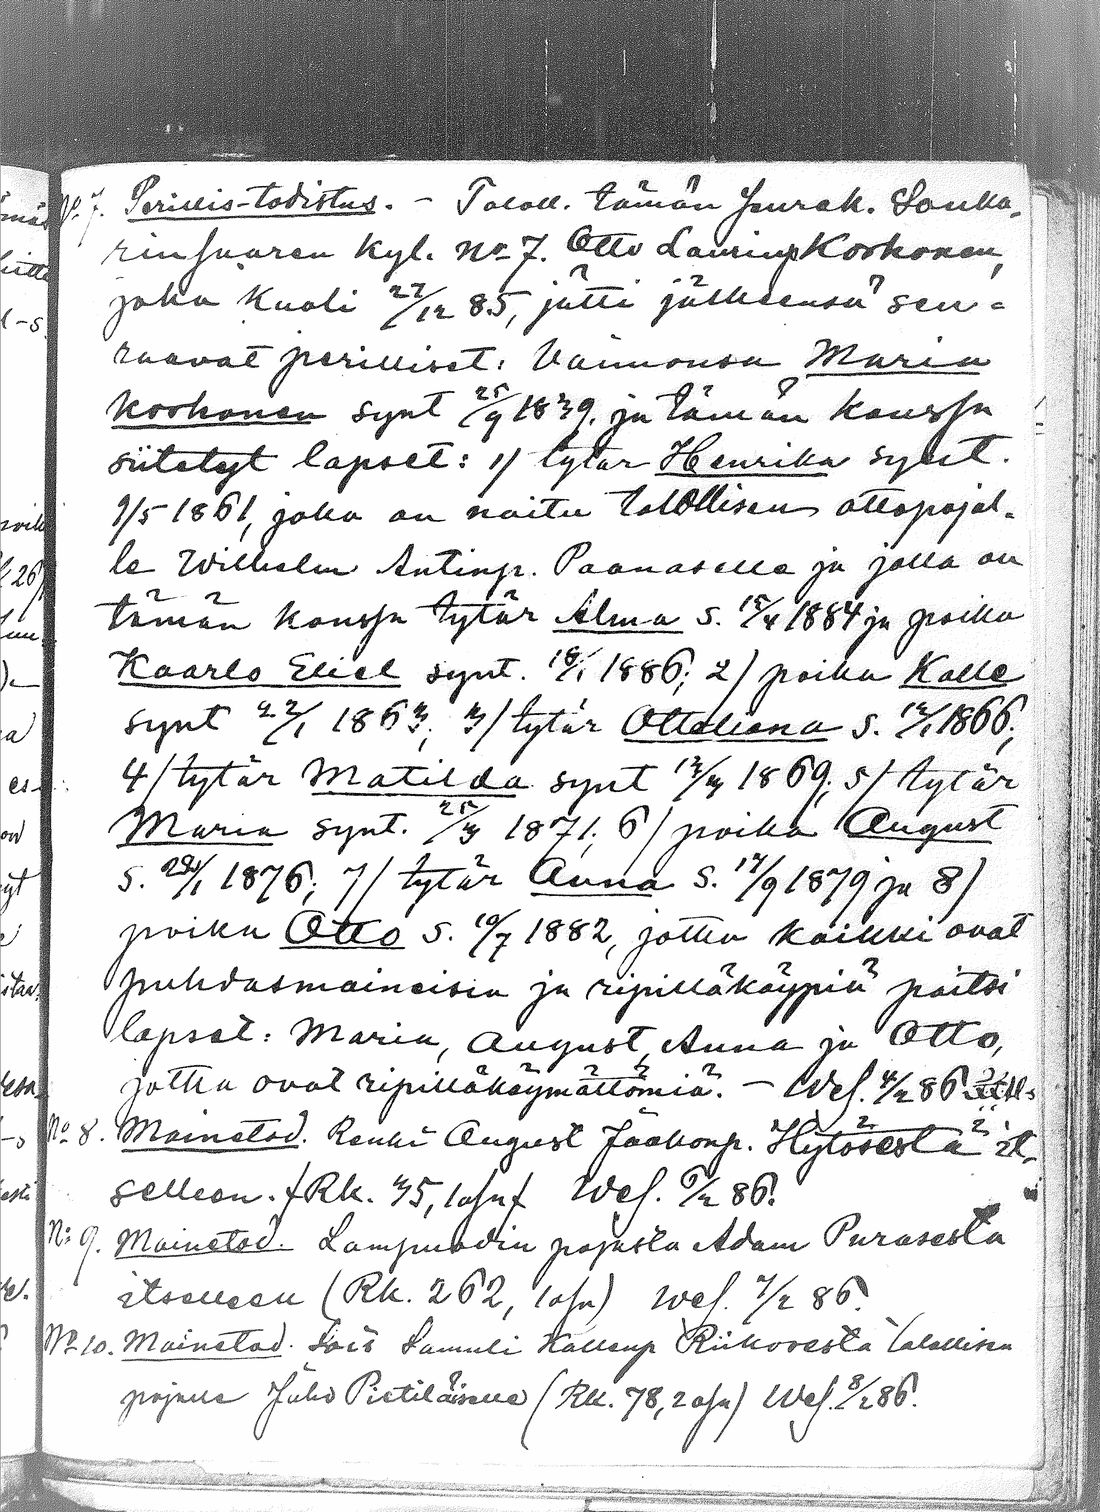 No 7. Perillis-todistus. – Taloll. tämän Seurak. Sonka-
rinsaaren kyl. No 7. Otto Laurinp Korhonen,
joka kuoli 27/12 85, jätti jälkeensä seu-
raavat perilliset: Vaimonsa Maria
Korhonen synt 25/9 1839. ja tämän kanssa
siitetyt lapset: 1/ tytär Henrika synt.
9/5 1861, joka on naitu talollisen ottopojal-
le Wilhelm Antinp. Paanaselle ja jolla on
tämän kanssa tytär Alma s. 15/4 1884 ja poika
Kaarlo Eliel synt. 18/1 1886; 2) poika Kalle
synt 22/1 1863; 3/ tytär Ottaliana s. 12/1 1866;
4/ tytär Matilda synt 13/3 1869; 5/ tytär
Maria synt. 25/3 1871; 6/ poika August
s. /1 1876; 7/ tytär Anna s. 17/9 1879 ja 8)
poika Otto s. 10/7 1882, jotka kaikki ovat
puhdasmaineisia ja ripilläkäypiä paitsi
lapset: Maria, August, Anna ja Otto,
jotka ovat ripilläkäymättömiä. – Wes. 4/2 86
No 8. Mainetod. Renki August Jaakonp. Hytösestä it-
selleen. (Rk. 35, 1 osa) Wes. 6/2 86.
N: 9. Mainetod. Lampuodin pojasta Adam Purasesta
itselleen (Rk. 262, 1 osa) Wes. 7/2 86.
No 10. Mainetod. Lois Samuli Kallenp Riikosesta talollisen
pojalle Juho Pietiläiselle (Rk. 78, 2 osa) Wes. 8/2 86.